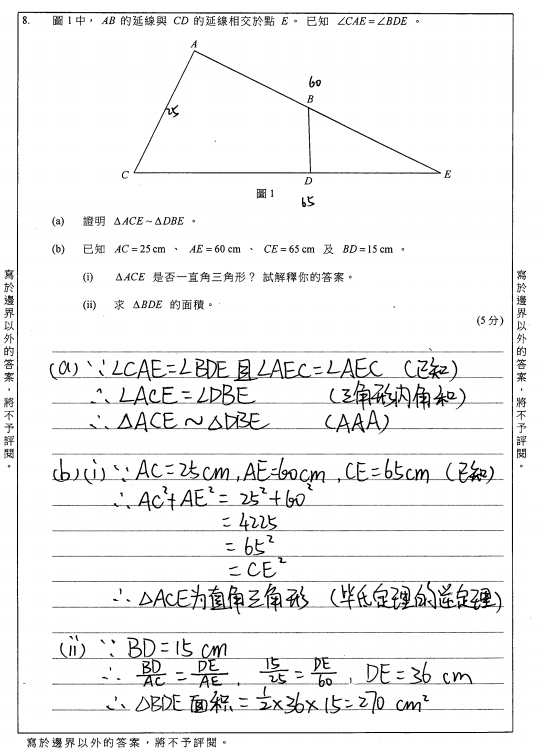 8. 圖 1 中， AB 的延線與 CD 的延線相交於點 E 。 已知 ∠CAE = ∠BDE 。
A
60
B
25
C
D
E
圖 1
65
(a) 證明 ΔACE ~ ΔDBE 。
(b) 已知 AC = 25 cm 、 AE = 60 cm 、 CE = 65 cm 及 BD = 15 cm 。
(i) ΔACE 是否一直角三角形？ 試解釋你的答案。
(ii) 求 ΔBDE 的面積。
(5 分)
寫於邊界以外的答案，將不予評閱。
寫於邊界以外的答案，將不予評閱。
(a) ∵ ∠CAE = ∠BDE 且 ∠AEC = ∠AEC (已知)
∴ ∠ACE = ∠DBE (三角形內角和)
∴ △ACE ~ △DBE (AAA)
(b) (i) ∵ AC = 25 cm , AE = 60 cm , CE = 65 cm (已知)
∴ AC² + AE² = 25² + 60²
= 4225
= 65²
= CE²
∴ △ACE为直角三角形 (毕氏定理的逆定理)
(ii) ∵ BD = 15 cm
∴ BD/AC = DE/AE , 15/25 = DE/60 , DE = 36 cm
∴ △BDE 面积 = 1/2 × 36 × 15 = 270 cm²
寫於邊界以外的答案，將不予評閱。